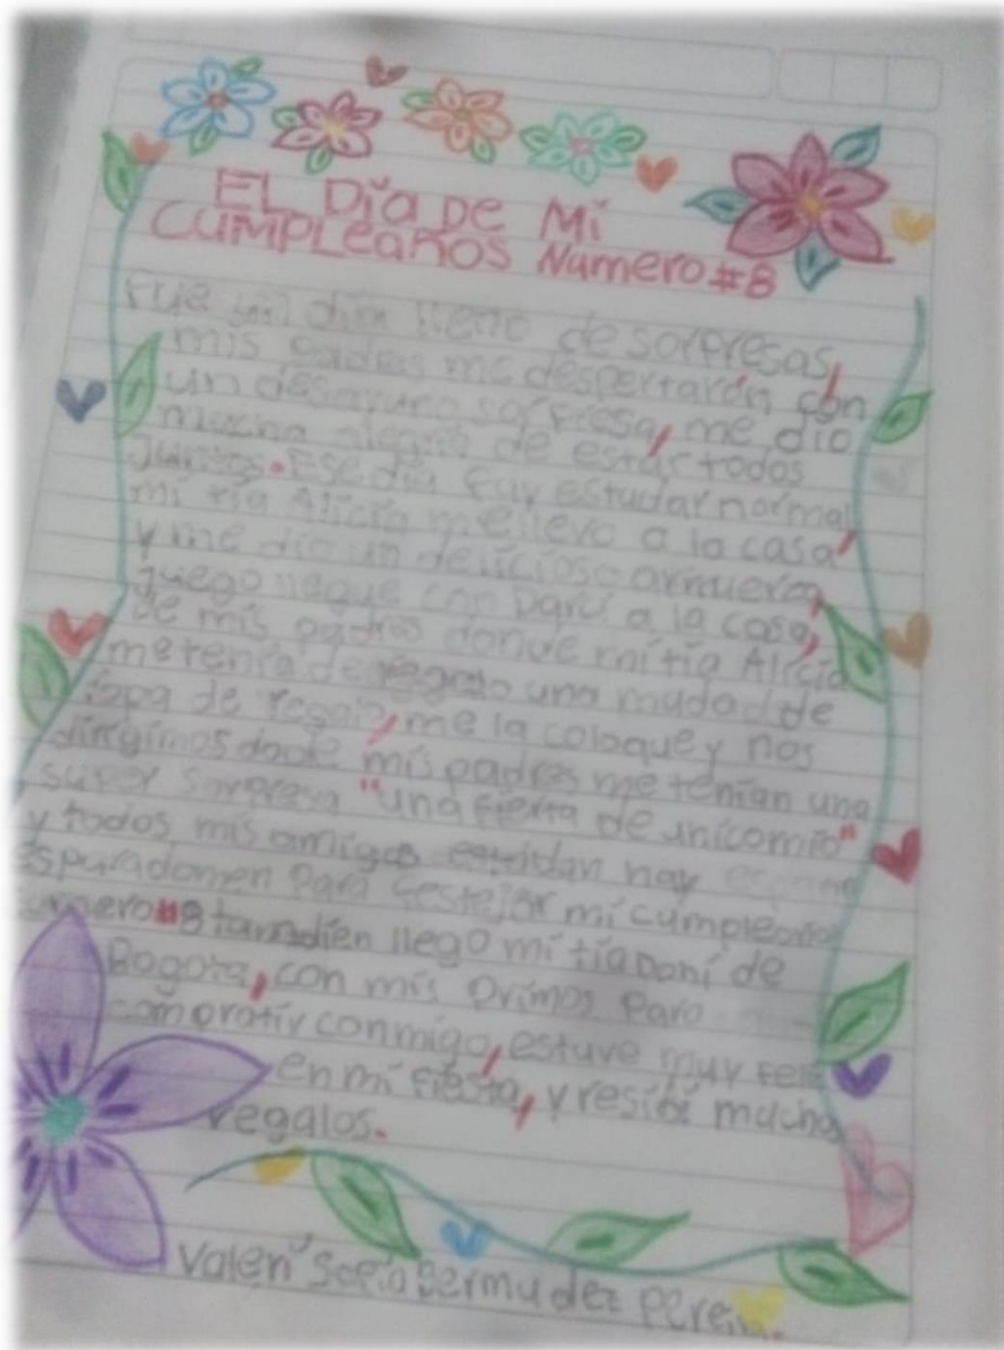 EL Día DE Mi
CUMPLeaños Numero #8
Fue un dia lleno de sorpresas,
mis padres me despertarón, con
un desayuno sorpresa, me dio
mucha alegria de estar todos
Juntos. Ese dia fuy estudar normal
mi tia Alicia me llevo a la casa,
y me dio un delicioso armuerzo,
luego llegue con a la casa,
de mis padres donde mi tia Alicia
me tenia de regalo una mudad de
ropa de regalo, me la coloque y nos
dirigimos donde mis padres me tenian una
super sorpresa "una fiesta de unicornio"
y todos mis amigos estidan hay
espuradomen para festejar mi cumpleaños
numero #8 tamdien llego mi tia Dani de
Bogota, con mis primos para
compratir conmigo, estuve muy feliz
en mi fiesta, y resibi muchos
regalos.
Valeri Sofia Bermudez